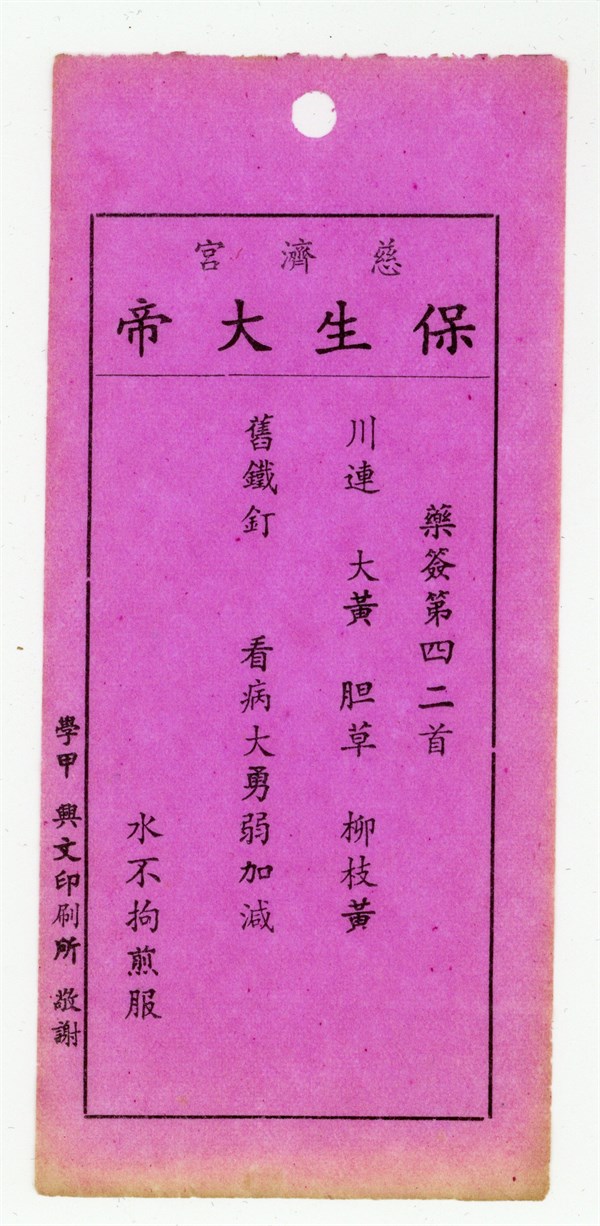 慈濟宮
保生大帝
藥簽第四二首
川連　大黃　胆草　柳枝黃
舊鐵釘　看病大勇弱加減
水不拘煎服
學甲　興文印刷所　敬謝